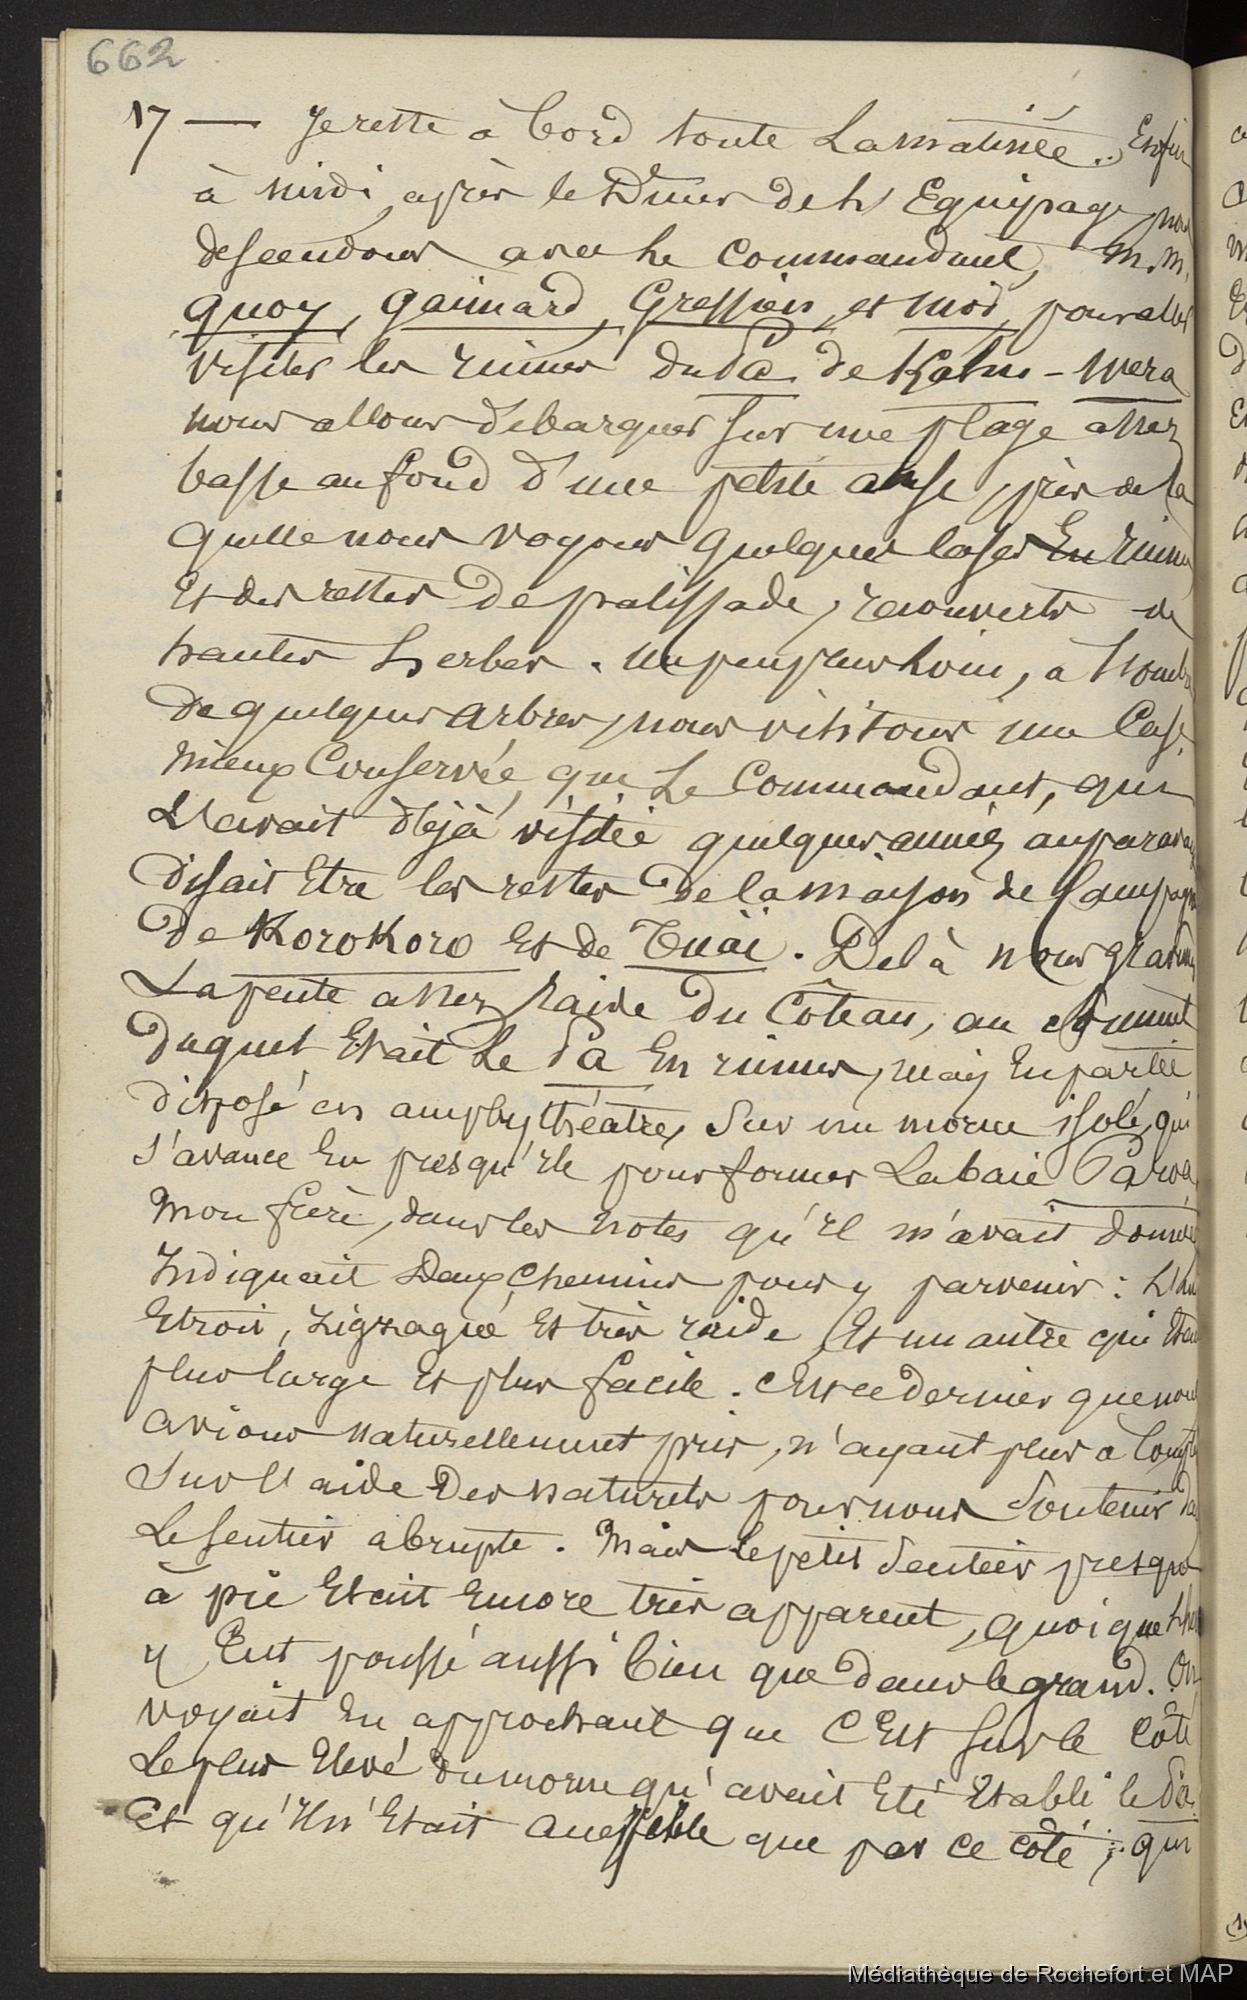 662
17 — Je reste à bord toute La matinée.. Enfin
à midi, après le Diner de L'Equipage, nous
descendons avec Le Commandant, M.M.
Quoy, Gaimard, Gressien, et moi, pour aller
visiter les ruines du Pa de Kahu-Wera
nous allons débarquer sur une plage assez
basse au fond d'une petite anse, près de la
quelle nous voyons quelques cases En ruines
Et des restes de palissade, recouverts de
hautes herbes. un peu plus Loin, a L'ombre
de quelques arbres, nous visitons une Case
mieux Conservée que Le Commandant, qui
L'avait déjà visitée quelques années auparavant
disait Etre les restes de la maison de Campagne
de KoroKoro Et de Tuaï. De là nous gravimes
La pente assez raide du Côteau, au Sommet
duquel Etait Le Pa En ruines, mais En partie
disposé en amphythéatre, Sur un morne isolé, qui
s'avance En presqu'Ile pour former La baie Paroa
Mon frère, dans les notes qu'Il m'avait données
Indiquait Deux Chemins pour y parvenir : L'un
Etroit, zigzagué Et très raide, Et un autre qui Etait
plus large Et plus facile. C'Est ce dernier que nous
avions naturellement pris, n'ayant plus a Compter
Sur L'aide Des naturels pour nous Soutenir dans
Le sentier abrupte. Mais Le petit Sentier presque
à pic Etait Encore très apparent, quoique L'herbe
y Eut poussé aussi bien que dans le grand. On
voyait En approchant que C'Est sur le Côté
Le plus Elevé du morne qu'avait Eté Etabli le Pa
Et qu'Il n'Etait accessible que par ce côté, qui
Médiathèque de Rochefort et MAP